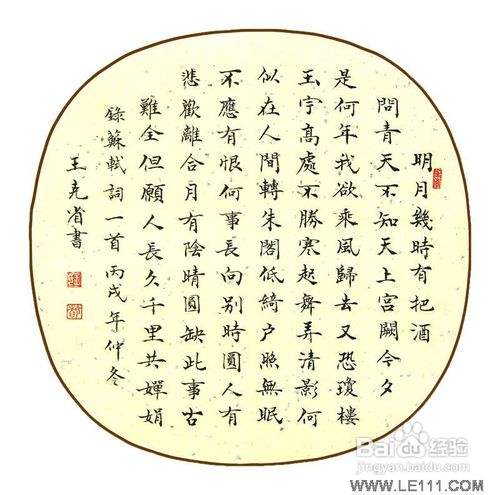 明月幾時有把酒
問青天不知天上宮闕今夕
是何年我欲乘風歸去又恐瓊樓
玉宇高處不勝寒起舞弄清影何
似在人間轉朱閣低綺户照無眠
不應有恨何事長向別時圓人有
悲歡離合月有陰晴圓缺此事古
難全但願人長久千里共嬋娟
錄蘇軾詞一首丙戌年仲冬
王克省書
Baidu 经验
jingyan.baidu.com
WWW.LE111.COM